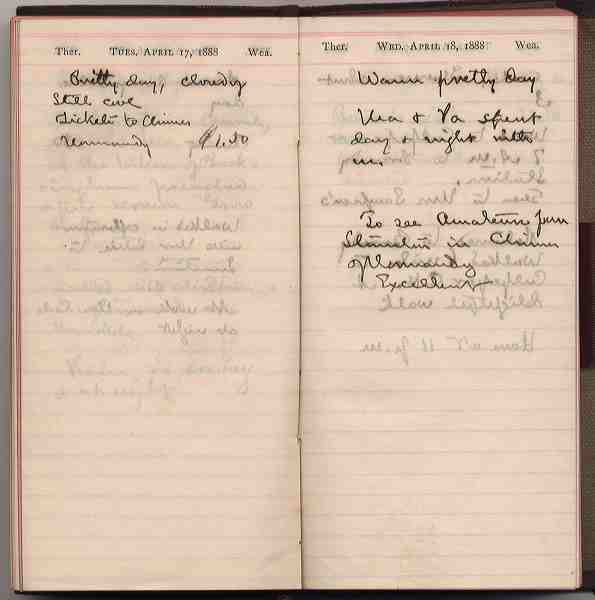 Ther. Tues. April 17, 1888 Wea.
Pretty day, cloudy
Still cool
Tickets to Chimes
Normandy $1.50
Ther. Wed. April 18, 1888 Wea.
Warm pretty day
Ma & Pa spent
day & night with
us.
To see Amateurs from
in Chimes
of Normandy
Excellent